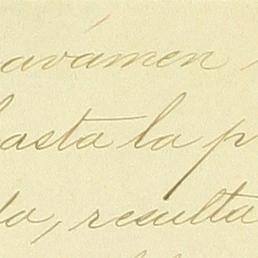 avámen
hasta la p
da, resulta